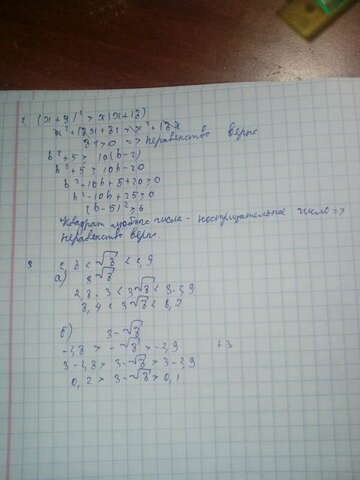 (x+9)² > x(x+18)
x²+18x+81 > x²+18x
81>0 => неравенство верно
b²+5 ≥ 10(b-2)
b²+5 ≥ 10b-20
b²-10b+5+20≥0
b²-10b+25≥0
(b-5)²≥0
Квадрат любого числа - неотрицательное число =>
неравенство верно.
3. 2,8 < √8 < 2,9
а) 3√8
2,8·3 < 3√8 < 2,9·3
8,4 < 3√8 < 8,7
б) 3-√8
-2,8 > -√8 > -2,9 +3
3-2,8 > 3-√8 > 3-2,9
0,2 > 3-√8 > 0,1